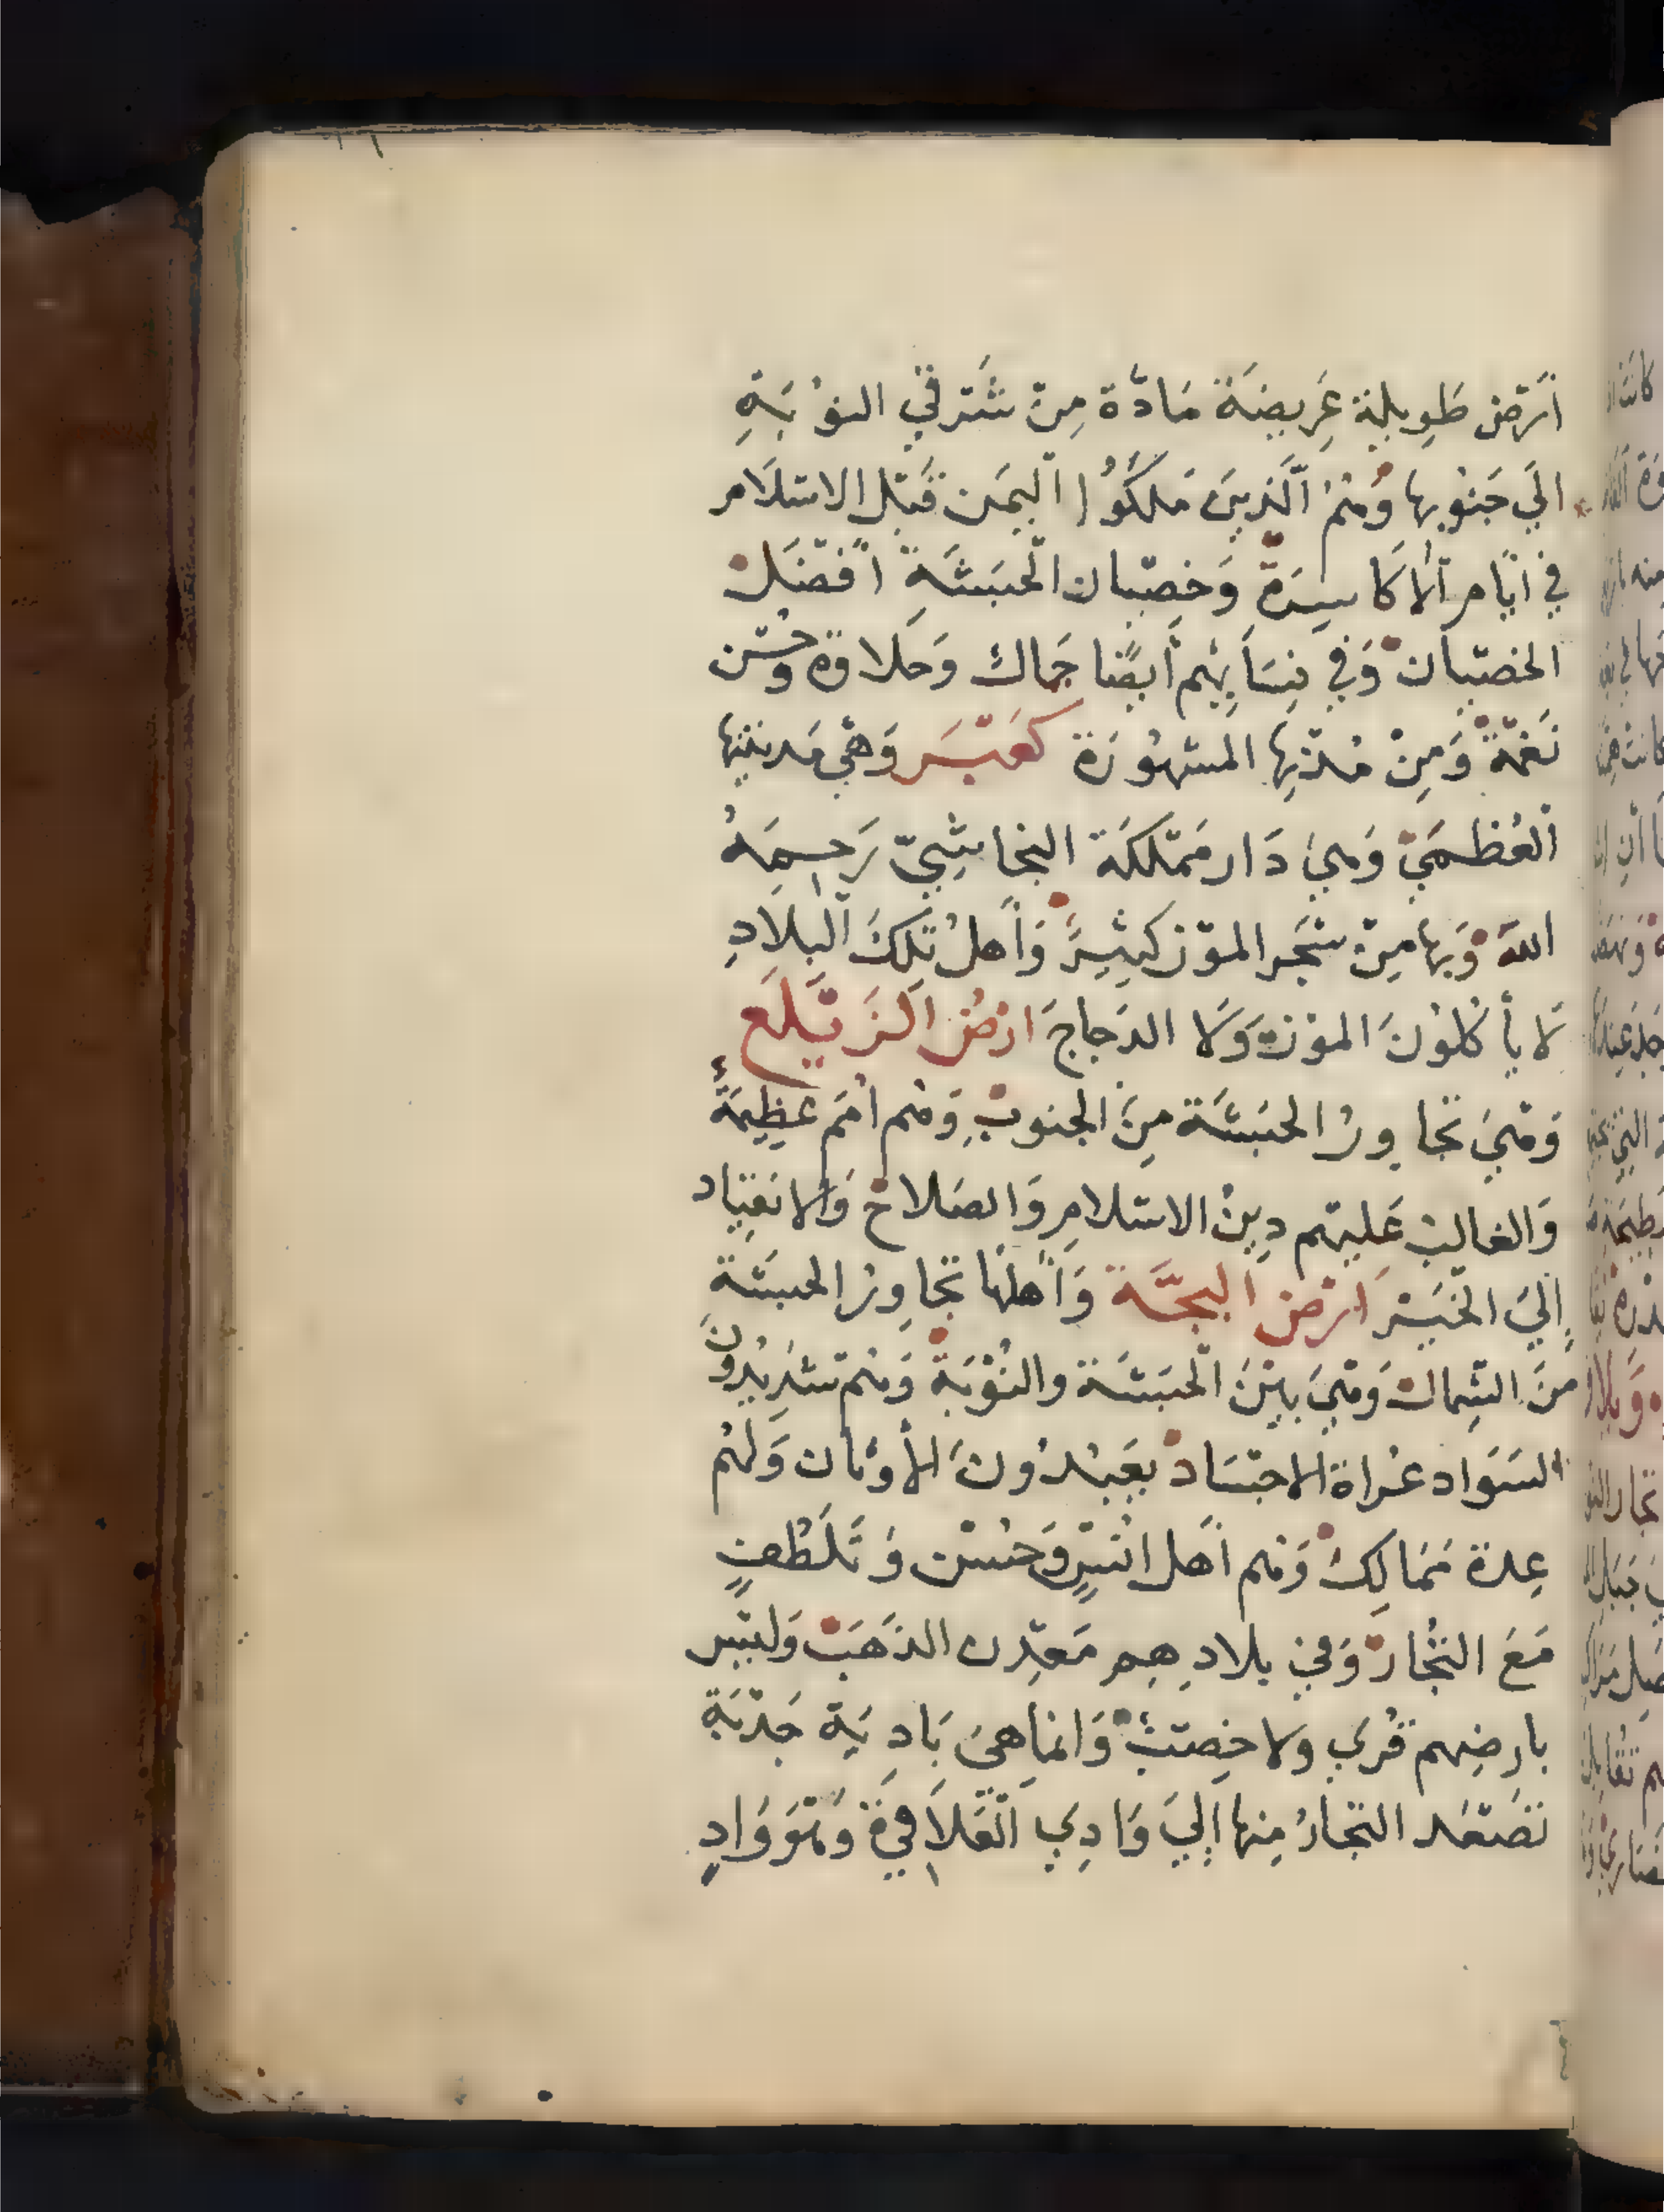 أَرْض طَوِيلة عَرِيضَة مَادَّة مِنْ شَرْقي النوْبَةِ
الَي جَنُوبها وَهُمُ الَّذِينَ مَلكَوُا اليَمَن قَبْل الاسْلَام
في ايَّام الأكَاسِرَة وَخصْيان الحَبَشَةِ افْضَل
الخصْيان وَفي نِسَآيِهِم أيضًا جَمال وَحَلاوة وحُسْن
نَغمَة وَمِنْ مُدْنِها المشهُورَة كعْبَر وَهْي مَدينتها
الْعُظمَي وَهي دَار مَمْلكَة النجاشِيّ رَحِمَهُ
اللّه وَبها مِنْ شَجَر الموْز كثِيرٌ وَأهلُ تلكَ البلَادِ
لَا يأكلوُنَ الموْز وَلَا الدجاجَ ارْضُ الزَيْلَع
وَهْيَ تجاورُ الحَبَشَة مِنَ الجنوبِ وَهُم امَم عَظِيمَةٌ
وَالغالبُ عَليْهم دِينُ الاسْلامِ وَالصَلاح وَالانقيَاد
إليَ الخَيْر ارْض البجَّة وَأهلهَا تجاوِرُ الحبشَة
مِنَ الشِمال وَهْيَ بيْنَ الحَبَشَة والنُوْبَة وَهُم شَدِيْدُونَ
السَوَاد عُراة الاجْسَاد يعَبدُونَ الأوثان وَلهُم
عِدة مَمَالِك وَهُم أهل انْسٍ وَحُسْن وَتَلَطُفٍ
مَعَ التُجَّار وَفي بلادِهِم مَعْدِن الذهَبْ وَليْسَ
بارضِهم قُرَي ولا خِصْبٌ وَانمَا هي بَادِيَة جَدْبَة
تَصْعَد التجَارُ مِنها إليَ وَادِي العَلَاقي وَهْوَ وَادٍ